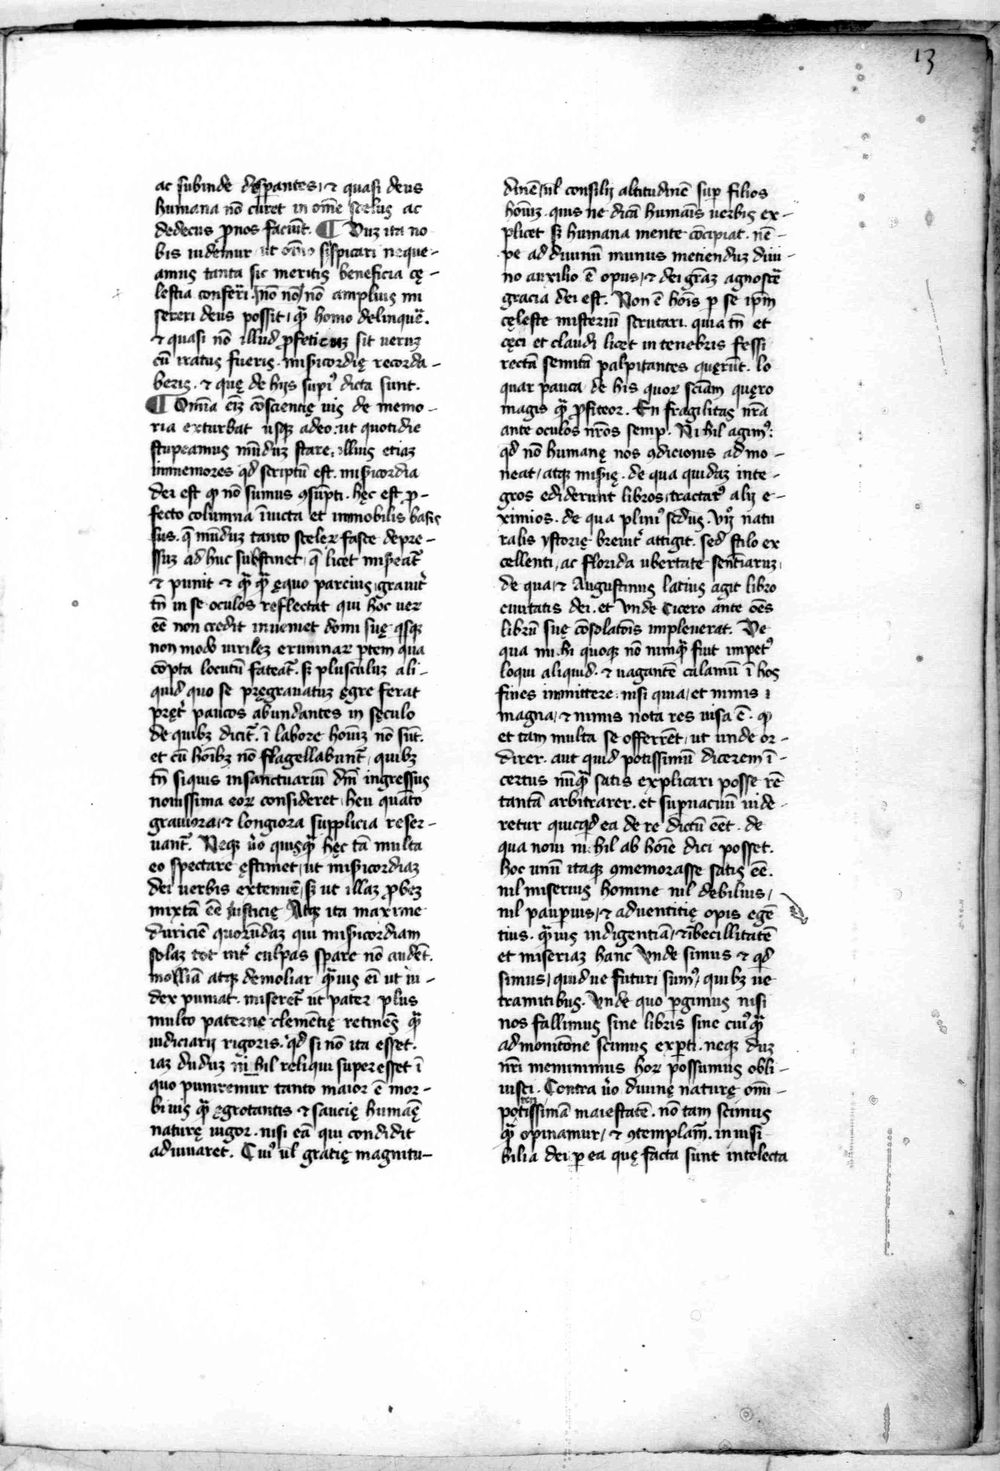 13
ac subinde desꝑantes, ⁊ quasi deus
humana nō curet in om̄e scelus ac
dedecus ꝓnos faciūt. ¶ Vuȝ ita no
bis uidemur, ut oīno suspicari neque-
amus tanta sic meritis beneficia cę-
lestia conferri. nō nō, nō amplius mi
sereri deus possit, q̄ȝ homo delinquē.
⁊ quasi nō illud ꝓfeticuȝ sit ueruȝ
cū iratus fueris, misericordię recorda-
beris, ⁊ quę de hijs supi⁹ dicta sunt.
¶ Omīa eīȝ cōscientię uis de memo-
ria exturbat usqȝ adeo, ut quotidie
stupeamus mūduȝ stare, illius etiaȝ
inmemores qd̄ scriptū est. misericordia
dei est ꝙ nō sumus ꝯsūpti. hęc est ꝓ-
fecto columna īuicta et immobilis basis
sus. q̄ mūduȝ tanto sceleꝝ fasce depre-
ssuȝ ad huc substinet, q̄ licet misereat̄
⁊ punit ⁊ q̄ȝ q̄ȝ ęquo parcius, grauit̄
tn̄ in se oculos reflectat qui hoc uer
ēē non credit inueniet domi suę q̄sqȝ
non modo uirileȝ erumnaꝝ ꝑtem qua
cōpta locutū fateat̄. sȝ plusculuȝ ali-
quid quo se pręgrauatuȝ ęgre ferat
pręt̄ paucos abundantes in sęculo
de quibȝ dicit̄. ī labore homīȝ nō sūt.
et cū hoībȝ nō flagellabunt̄, quibȝ
tn̄ si quis in sanctuariū dn̄i ingressus
nouissima eoꝝ consideret, heu quāto
grauiora, ⁊ longiora supplicia reser-
uant̄. Neqȝ u̇o quisq̄ȝ hęc tā multa
eo spectare ęstimet, ut misericordiaȝ
dei uerbis extenuē, sȝ ut illaȝ ꝓbeȝ
mixtā ēē iusticię Atqȝ ita maxime
duriciē quorūdaȝ qui misericordiam
solaȝ tot int̄ culpas sꝑare nō audēt.
molliā atqȝ demoliar q̄ȝuis eī ut iu-
dex puniat. miseret̄ ut pater plus
multo paternę clemētię retinēs q̄ȝ
iudiciarij rigoris. qd̄ si nō ita esset.
iaȝ duduȝ ni hil reliqui superesset ī
quo puniremur tanto maior ē mor-
bi uis q̄ȝ ęgrotantis ⁊ saucię humanę
naturę uigor. nisi eā qui condidit
adiuuaret. Cui⁹ ul̄ gratię magnitu-
dinē, ul̄ consilij altitudinē suꝑ filios
homīȝ. quis ne dicā humaīs uerbis ex-
plicet sȝ humana mente cōcipiat. nē-
pe ad diuinū munus metienduȝ diui-
no auxilio ē opus, ⁊ dei gr̄aȝ agnoscē
gracia dei est. Non ē hoīs ꝑ se ip̄m
cęleste misteriū scrutari. quia tn̄ et
cęci et claudi licet in tenebris fessi
rectā semitā palpitantes quęrūt. lo
quar pauca de his quoꝝ sciam quęro
magis q̄ȝ ꝓfiteor. En fragilitas nr̄a
ante oculos nr̄os semꝑ. Ni hil agim⁹:
qd̄ nō humanę nos ꝯdicionis admo-
neat, atqȝ miserię. de qua quidaȝ inte-
gros ediderunt libros, tractat⁹ alij e-
ximios. de qua plini⁹ sc̄dus. natu
ralis ystorię breuit̄ attigit. sed stilo ex
cellenti, ac florida ubertate sentētiaruȝ,
de qua, ⁊ Augustinus latius agit libro
ciuitatis dei. et Vnde Cicero ante oēs
librū suę cōsolatiōis impleuerat. De
qua mi hi quoqȝ nō nunq̄ȝ fuit impet⁹
loqui aliquid. ⁊ uagantē calamū ī hos
fines inmittere, nisi quia, et nimis
magna, ⁊ nimis nota res uisa ē. ꝙ
et tam multa se offerrēt, ut unde or-
direr. aut quid potissimū dicerem ī-
certus nūq̄ȝ satis explicari posse rē
tantā arbitrarer. et supuacuū uide-
retur quicqd̄ ea de re dictū eēt. de
qua noui ni hil ab hoīe dici posset.
hoc unū itaqȝ ꝯmemorasse satis ēē.
nil miserius homine nil debilius,
nil pauperius, ⁊ aduentitię opis egē
tius. q̄ȝuis indigentiā, ⁊ ībecillitatē
et miseriaȝ hanc Vnde simus ⁊ qd̄
simus, quid ue futuri sum⁹, quibȝ ue
tramitibus. Vnde quo ꝑgimus nisi
nos fallimus sine libris sine cui⁹q̄ȝ
admonitione scimus exꝑti. neqȝ duȝ
nr̄i meminimus hoꝝ possumus obli-
uisci. Contra u̇o diuinę naturę omī-
potissimā maiestatē. nō tam scimus
q̄ȝ opinamur, ⁊ ꝯtemplam̄. inuisi
bilia dei ꝑ ea quę facta sunt intelecta